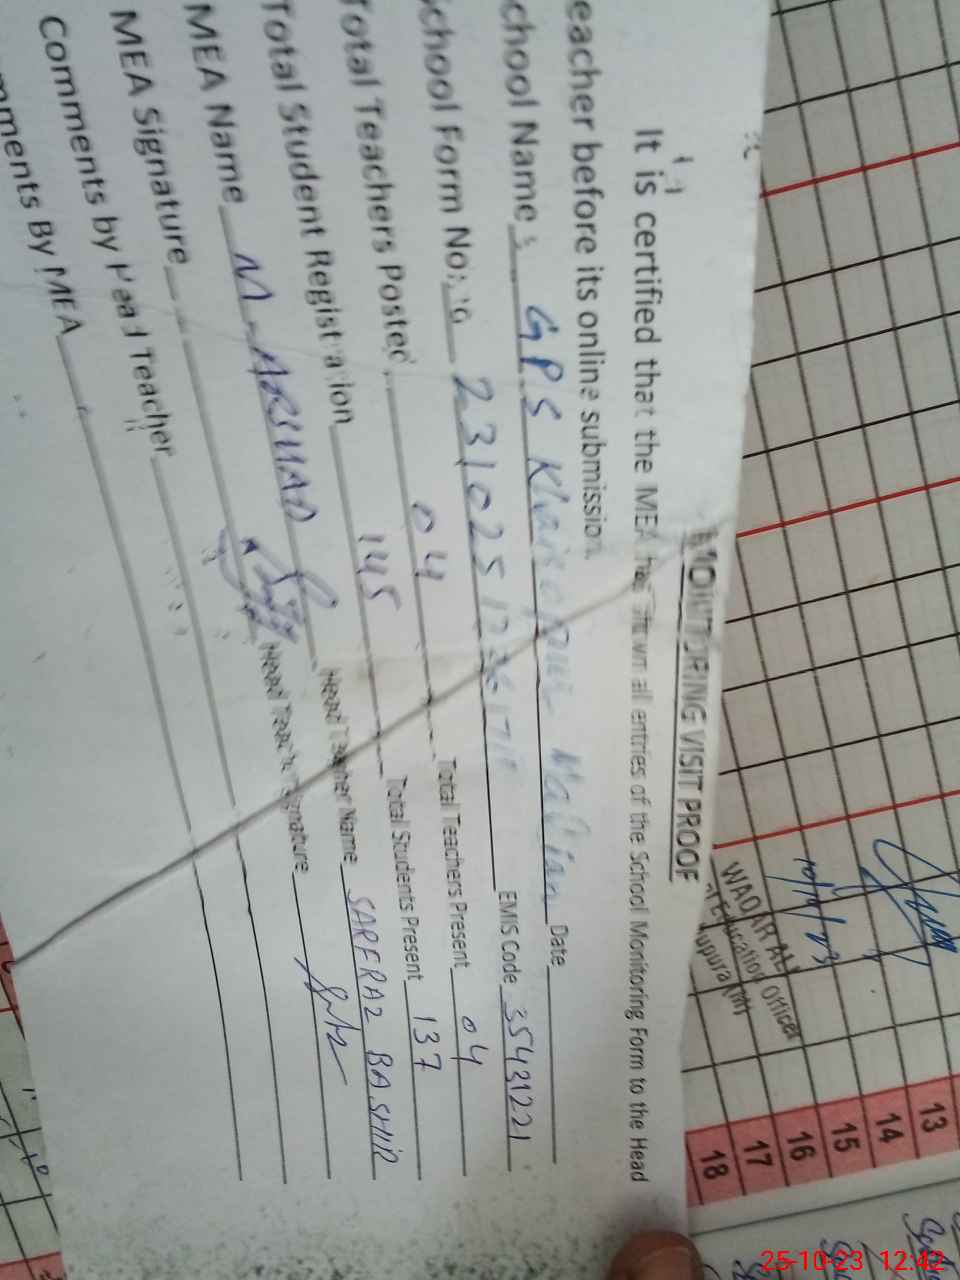 MONITORING VISIT PROOF
It is certified that the MEA has shown all entries of the School Monitoring Form to the Head
eacher before its online submission.
chool Name: GPS Date
chool Form No: 231025 EMIS Code 35431221
Total Teachers Posted 04 Total Teachers Present 04
Total Student Registration 145 Total Students Present 137
MEA Name M-ARSHAD Head Teacher Name SARFRAZ BASHIR
MEA Signature Head Teacher Signature
Comments by Head Teacher
mments By MEA
WAQAR ALI
Education Officer
13
14
15
16
17
18
25-10-23 12:42